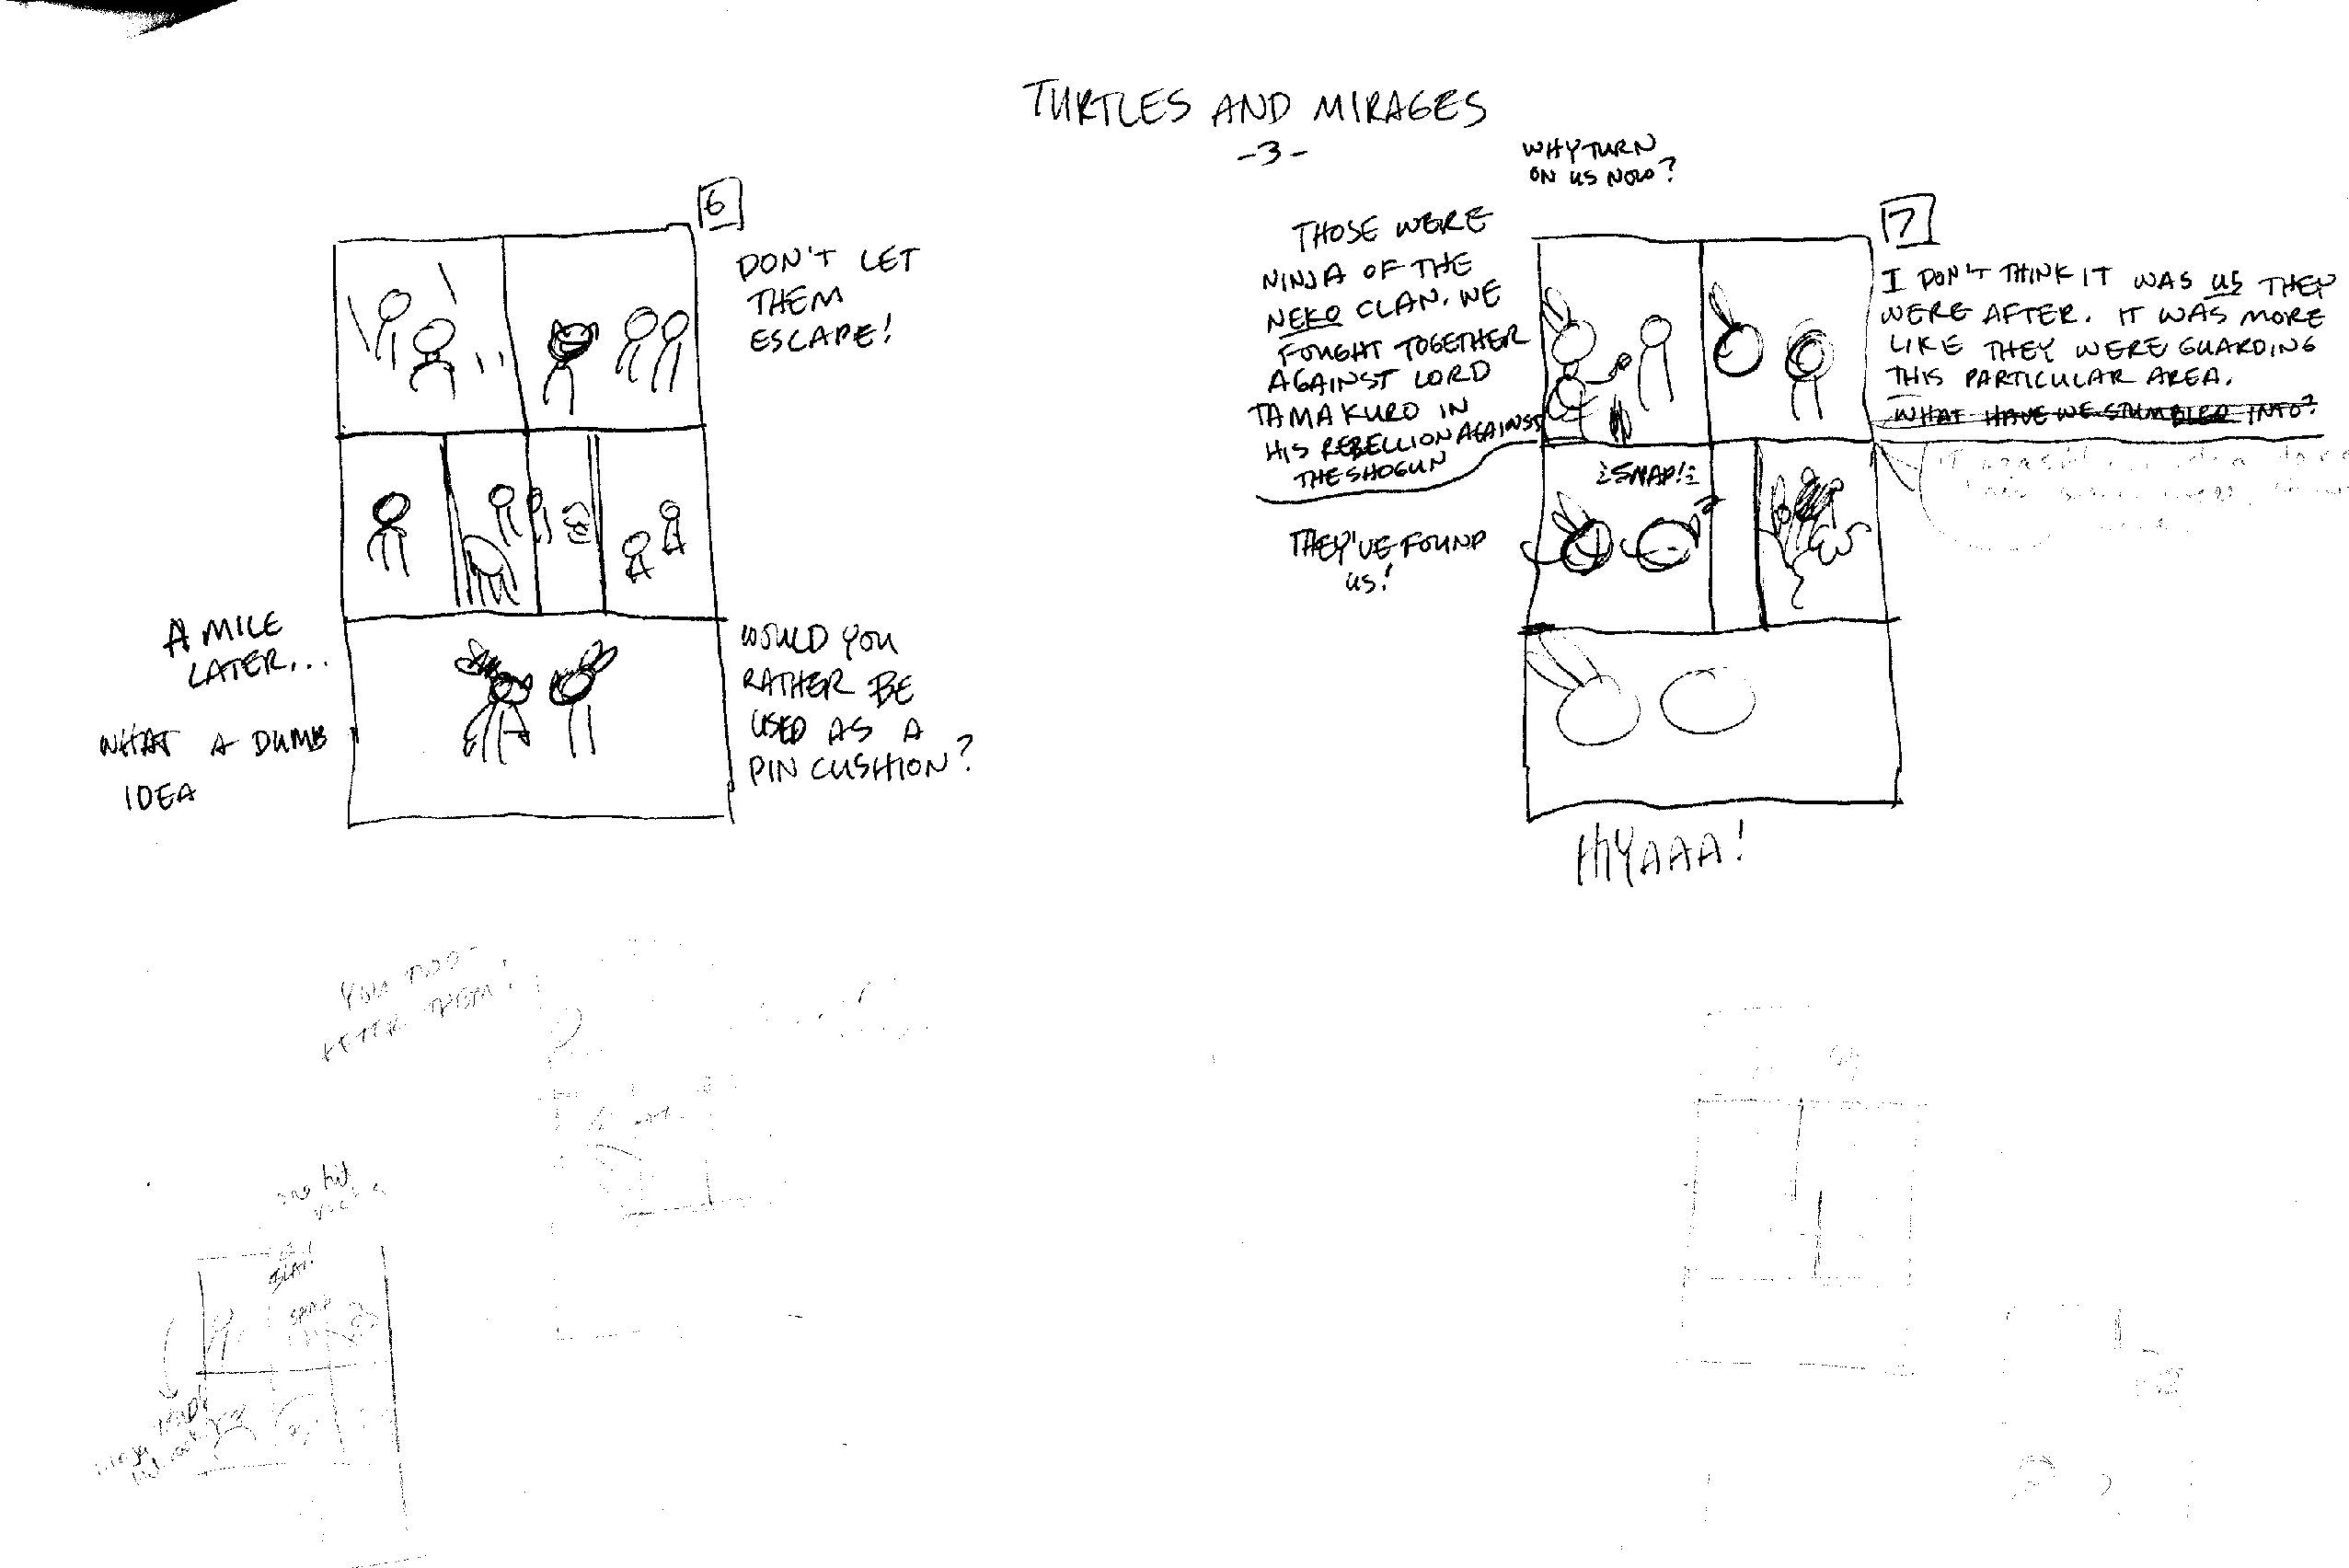 TURTLES AND MIRAGES
-3-
6
DON'T LET
THEM
ESCAPE!
A MILE
LATER...
WHAT A DUMB
IDEA
WOULD YOU
RATHER BE
USED AS A
PIN CUSHION?
WHY TURN
ON US NOW?
7
THOSE WERE
NINJA OF THE
NEKO CLAN. WE
FOUGHT TOGETHER
AGAINST LORD
TAMAKURO IN
HIS REBELLION AGAINST
THE SHOGUN
I DON'T THINK IT WAS US THEY
WERE AFTER. IT WAS MORE
LIKE THEY WERE GUARDING
THIS PARTICULAR AREA.
WHAT HAVE WE STUMBLED INTO?
SNAP!
THEY'VE FOUND
US!
HIYAAA!
YOU
THEM!